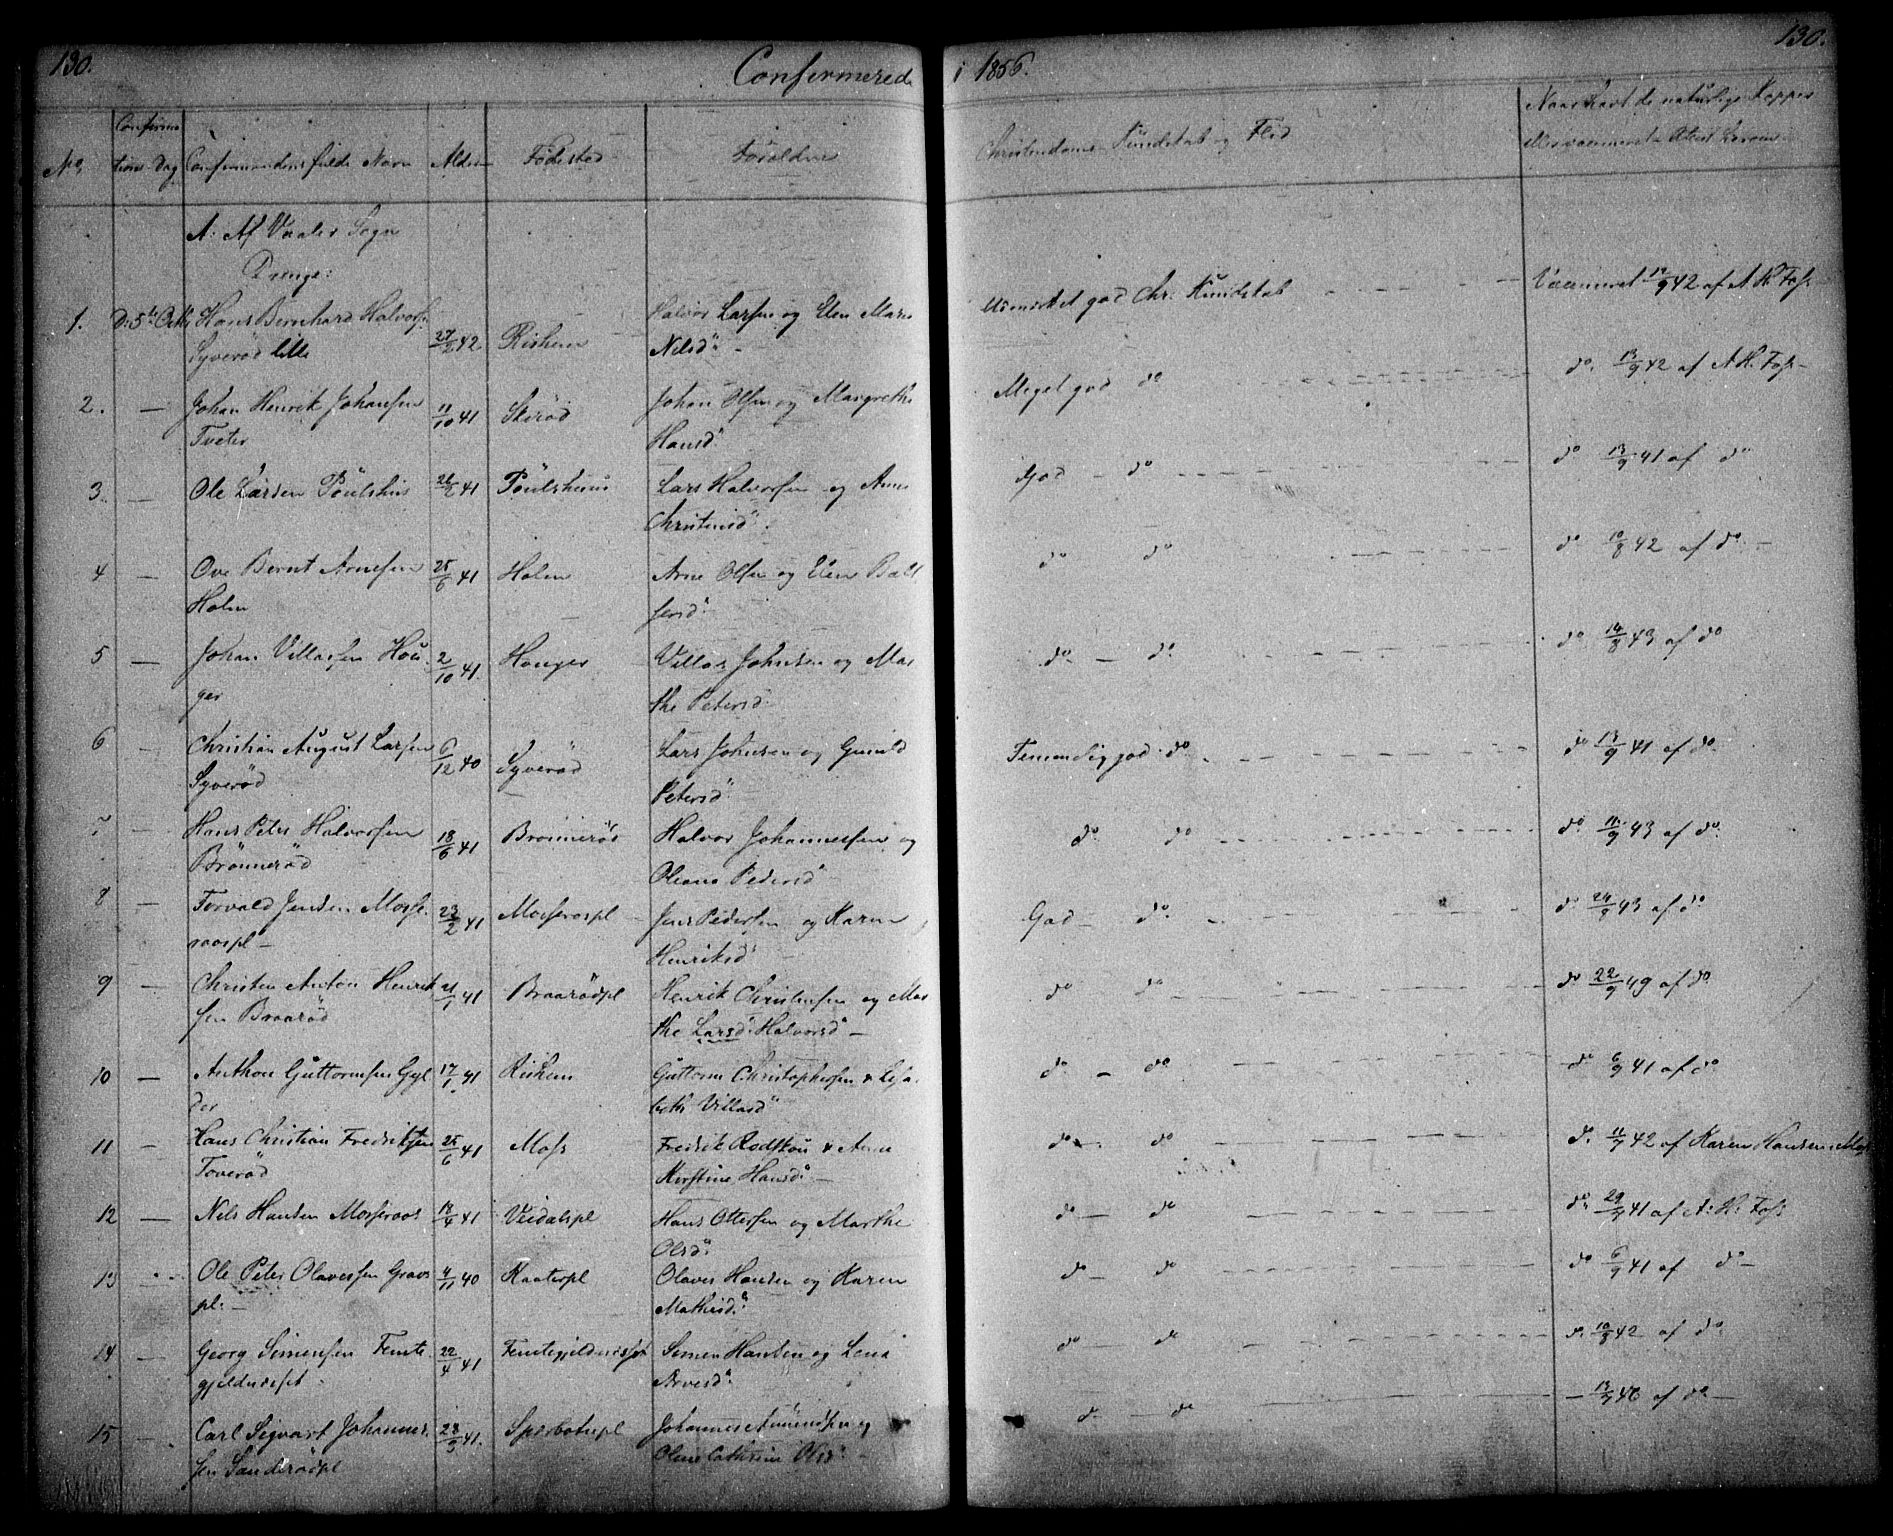 130. Confirmerede i 1856. 130.
No. Confirmations-Dag Confirmandens fulde Navn Alder Fødested Forældre Christendoms Kundskab og Flid Naar havt de naturlige Kopper
eller vaccineret
A. Af Vaaler Sogn
Drenge:
1. D. 5te Octbr Hans Bernhard Halvorsen 27/2 42 Riskeen Halvor Larsen og Elen Marie Udmærket god Chr. Kundskab Vaccineret 12/9 42 af A H. Foss
Syverød lille Nilsd.
2. — Johan Henrik Johansen 11/10 41 Skerød Johan Olsen og Margrethe Meget god do do. 13/9 42 af A H. Foss
Tveter Hansd.
3. — Ole Larsen Poulshus 26/2 41 Poulshuus Lars Halvorsen og Anne God do do 13/9 41 af do
Christensd.
4 — Ove Bernt Arnesen 25/6 41 Holm Arne Olsen og Elen Balt do do do 10/8 42 af do
Holm sersd.
5 — Johan Villassen Hou 2/10 41. Houger Villas Johnsen og Mar do — do do 14/8 43 af do
ger the Petersd.
6 — Christian August Larsen 6/12 40 Syverød Lars Johnsen og Gunild Temmelig god do do 13/9 41 af do
Syverød Petersd.
7 — Hans Peter Halvorsen 18/6 41 Brønnerød Halvor Johannessen og do. do do 11/9 43 af do
Brønnerød Oleana Pedersd.
8 — Torvald Jensen Mosse 23/2 41 Mosserospl Jens Pedersen og Karen God do. do 24/9 43 af do
raaspl Henriksd.
9 — Christen Anton Henrik 41 Braarødpl Henrik Christensen og Mar do do do 22/9 49 af do
sen Braarød the Larsd. Halvorsd.
10 — Anthon Guttormsen Gyl 17/1 41 Riskeen Guttorm Christophersen & Lisa do — do do 6/9 41 af do
der beth Villasd.
11 — Hans Christian Fredriksen 25/6 41 Moss Fredrik Rodskou & Anne do do do 11/7 42 af Karen Hansen, Moss
Toverød Kirstine Hansd.
12 — Nels Hansen Mosseraas 18/4 41 Veidalspl Hans Ottersen og Marthe do — do do 29/9 41 af A. H. Foss
Olsd.
13 Ole Peter Olavessen Gravs 4/11 40 Kaaterpl Olaves Hansen og Karen do — do do 6/9 41 af do
pl. Mathisd.
14 — Georg Simensen Femte 22/4 41 Femtegjeldurssæt Simen Hansen og Lena do — do do. 10/8 42 af do
gjeldurssæt Arvesd.
15 — Carl Sigvart Johannes 23/3 41. Sperbotnpl Johannes Amundsen og do — do 13/9 46 af do
sen Sanderødpl Oline Cathrine Olsd.